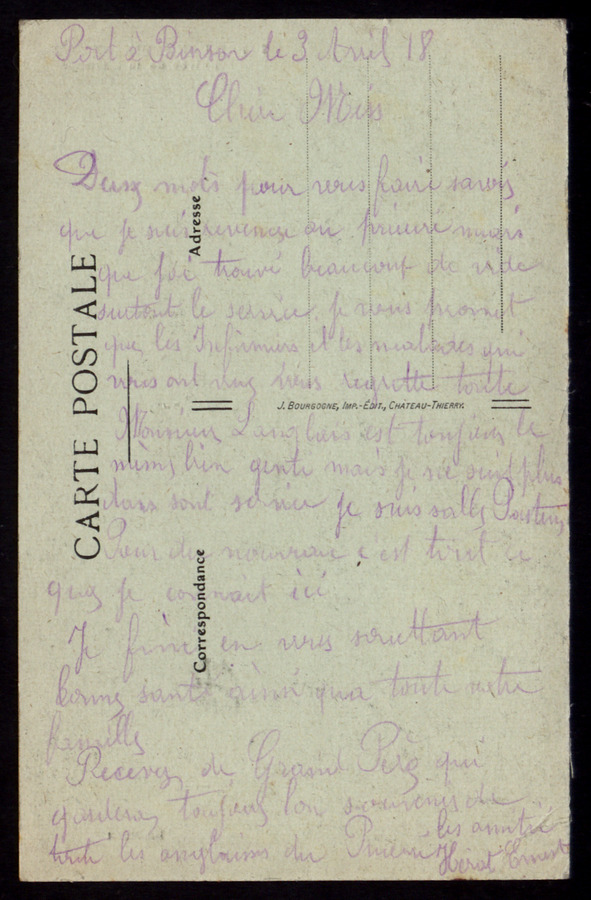 Port à Binson le 3 Avril 18
Cher Miss
Deux mots pour vous faire savoir
que je suis revenue au prieuré mais
que j'ai trouvé beaucoup de vide
surtout le service. je vous promet
que les Infirmiers et les malades qui
vous ont vue vous regrette toute
Monsieur Langlais est toujours le
même bien gentil mais je ne suis plus
dans sont service je suis salle Pasteur
Pour du nouveau c'est tout ce
que je connait ici
Je fini en vous souettant
bonne santé ainsi qua toute votre
famille
Recevez de Grand Père qui
gardera toujours bon souvenir de
toute les anglaises du Prieuré
les amitié
Hérat Ernest
CARTE POSTALE
Correspondance
Adresse
J. BOURGOGNE, IMP.-EDIT., CHATEAU-THIERRY.